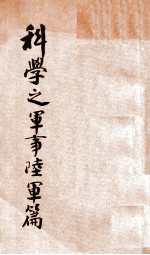 科學之軍事陸軍篇